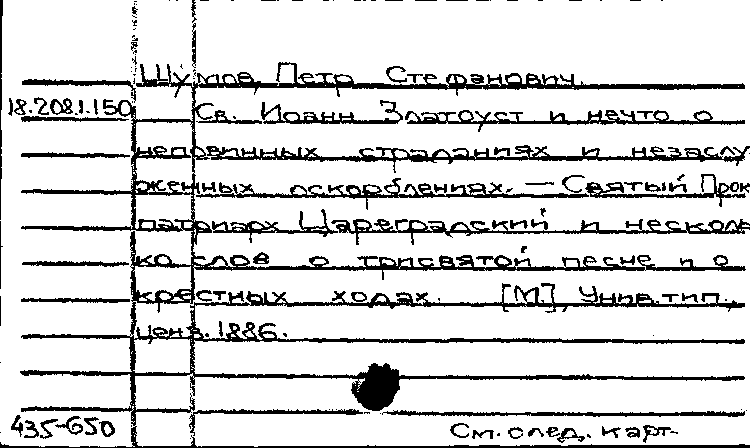 Шумов, Петр Стефанович.
18.208.1.150 Св. Иоанн Златоуст и нечто о
неповинных страданиях и незаслу
женных оскорблениях. — Святый Прок
патриарх Цареградский и несколь
ко слов о трисвятой песне и о
крестных ходах. [М], Унив. тип.,
ценз. 1886.
435-650 См. след. карт.